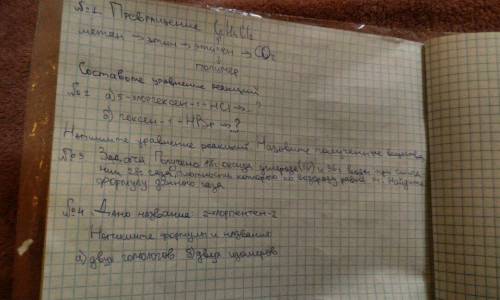 №1 Превращение C2H4Cl2
метан → этин → этилен → CO2
полимер
Составьте уравнение реакций
№2 а) 5-хлоргексен-1-HCl → ?
б) гексен-1-HBr → ?
Напишите уравнение реакций. Назовите полученные вещества.
№3 Задача. Получено 88г оксида углерода (IV) и 36г воды при сгора
нии 28г газа, плотность которого по водороду равна 14. Найдите
формулу данного газа
№4 Дано название: 2-хлорпентен-2
Напишите формулы и названия
а) двух гомологов б) двух изомеров